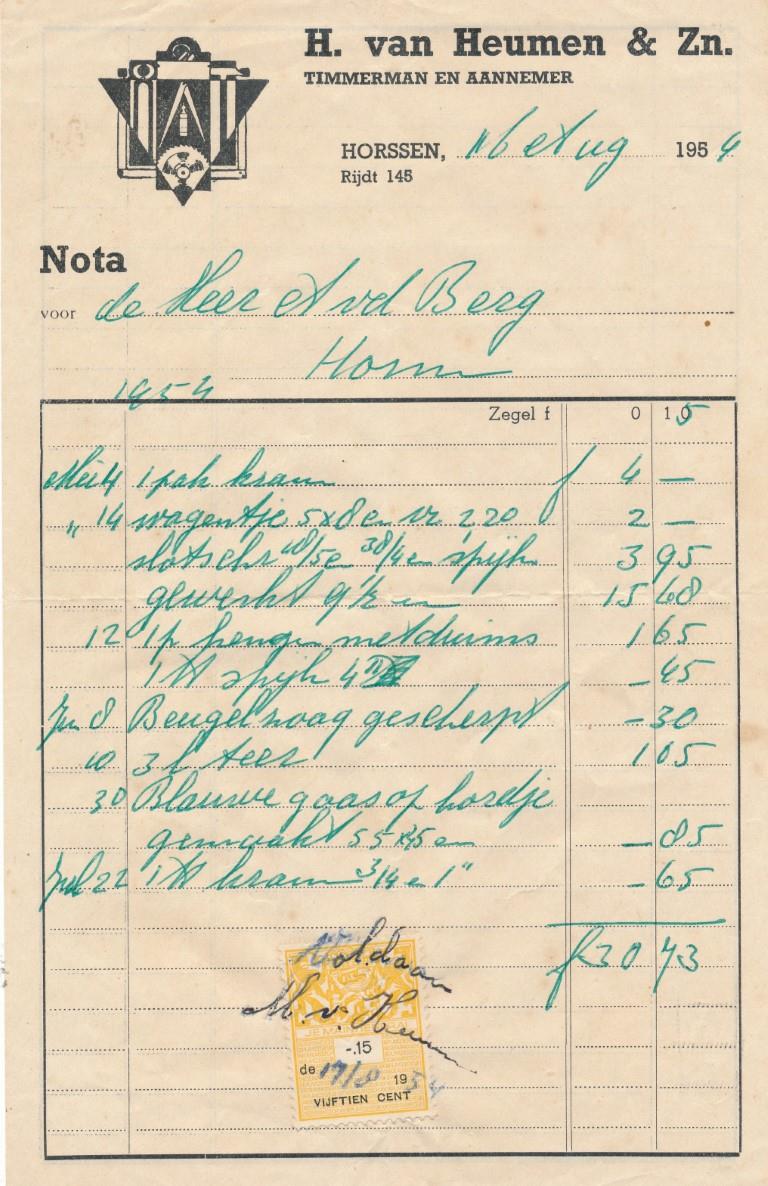 H. van Heumen & Zn.
TIMMERMAN EN AANNEMER
HORSSEN, 16 Aug 1954
Rijdt 145
Nota
voor de Heer A vd Berg
Horssen
1954
Zegel f 0 15
Mei 4 1 pak kram f 4 —
" 14 wagentje 5x8 en vr 220 2 —
slotschr 48/5 en 38/4 en spijk 3 95
gewerkt 9½ en 15 68
12 1 p hengen met duims 1 65
1 H spijk 4" — 45
Jun 8 Beugelzaag gescherpt — 30
10 3 l teer 1 05
30 Blauwe gaas op hordje
gemaakt 55 x 45 en — 85
Jul 22 1 H kram 3/4 en 1" — 65
f 30 73
Voldaan
M. v. Heumen
-.15
de 17/8 1954
VIJFTIEN CENT